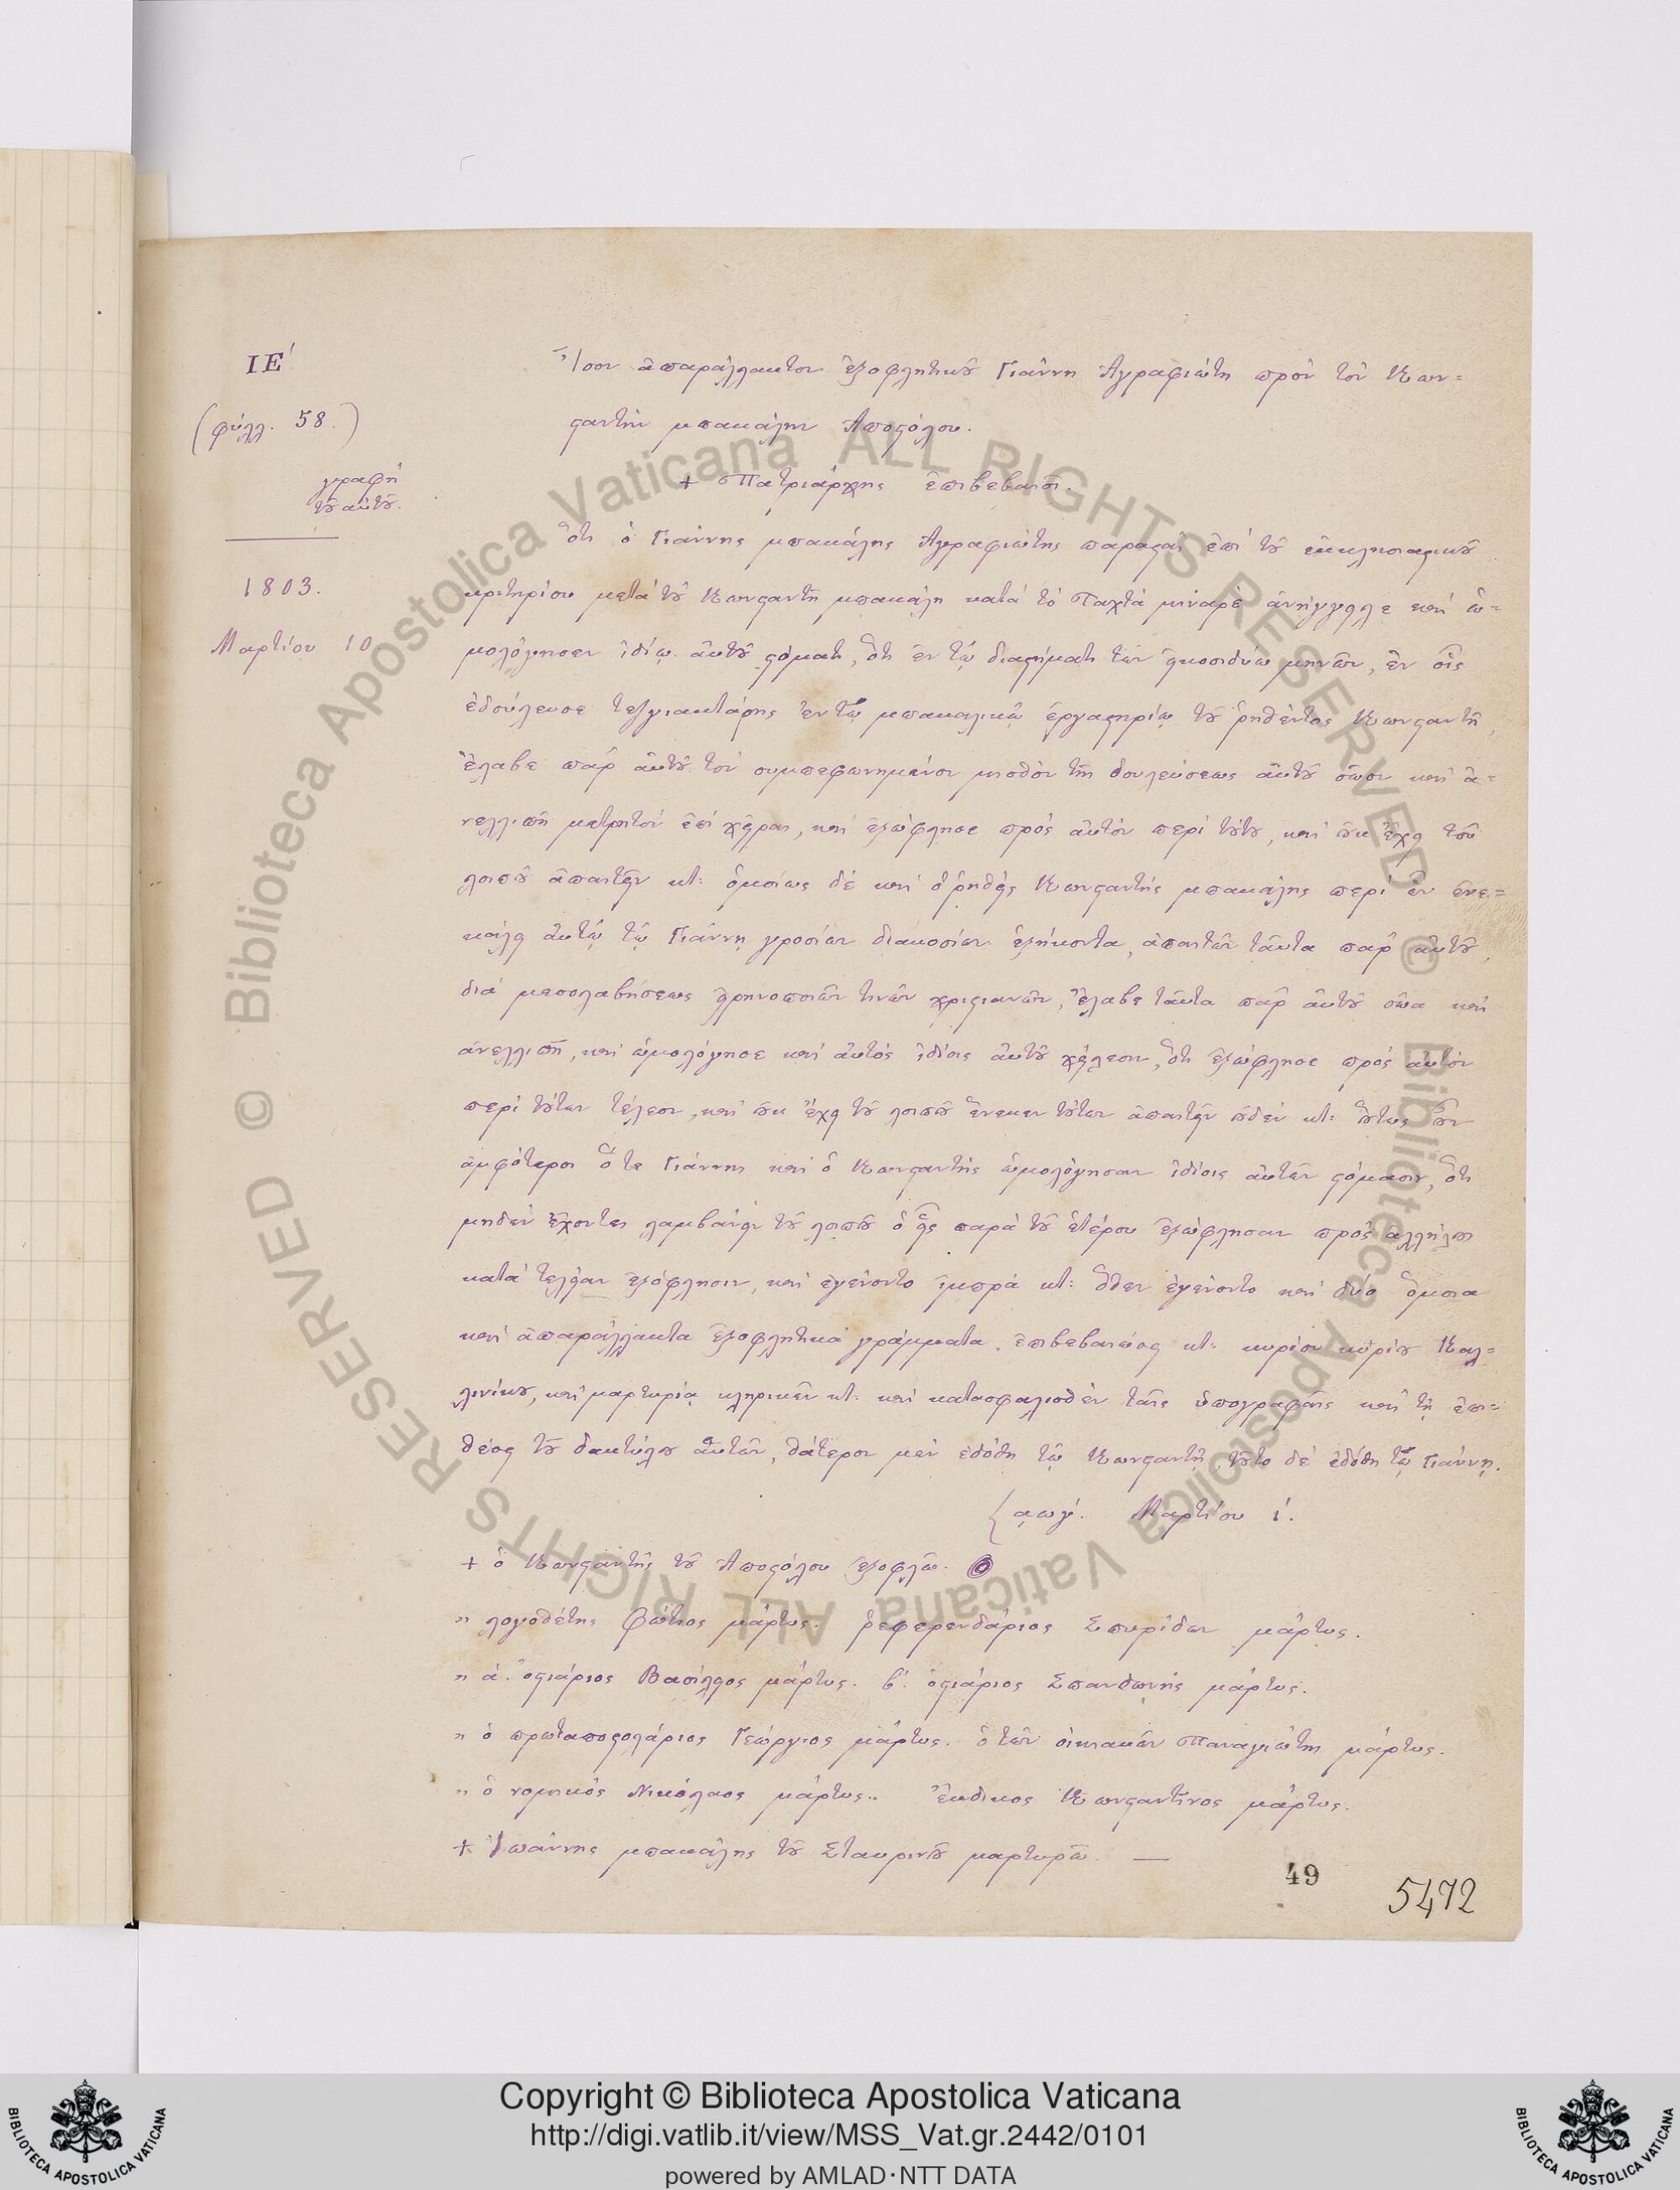 ΙΕ΄
(φύλλ. 58.)
γραφὴ
τοῦ αὐτοῦ.
1803.
Μαρτίου 10
Ἴσον ἀπαράλλακτον ἐξοφλητικοῦ Γιάννη Ἀγραφιώτη πρὸς τὸν Κων=
σταντὴν μπακάλην Ἀποστόλου.
+ Πατριάρχης ἐπιβεβαιοῖ.
Ὅτι ὁ Γιάννης μπακάλης Ἀγραφιώτης παραστὰς ἐπὶ τοῦ ἐκκλησιαστικοῦ
κριτηρίου μετὰ τοῦ Κωνσταντῆ μπακάλη κατὰ τὸ Παχτὰ μιναρὲ ἀνήγγειλε καὶ ὡ=
μολόγησεν ἰδίῳ αὐτοῦ στόματι, ὅτι ἐν τῷ διαστήματι τῶν εἰκοσιδύω μηνῶν, ἐν οἷς
ἐδούλευσε τεζγιακτάρης ἐν τῷ μπακαλικῷ ἐργαστηρίῳ τοῦ ῥηθέντος Κωνσταντῆ,
ἔλαβε παρ' αὐτοῦ τὸν συμπεφωνημένον μισθὸν τῆς δουλεύσεως αὐτοῦ σῶον καὶ ἀ=
νελλιπῆ μετρητὸν ἐπὶ χεῖρας, καὶ ἐξώφλησε πρὸς αὐτὸν περὶ τούτου, καὶ οὐκ ἔχει τοῦ
λοιποῦ ἀπαιτεῖν κτ: ὁμοίως δὲ καὶ ὁ ῥηθεὶς Κωνσταντὴς μπακάλης περὶ ὧν ἐνε=
κάλει αὐτῷ τῷ Γιάννῃ γροσίων διακοσίων ἑξήκοντα, ἀπαιτῶν ταῦτα παρ' αὐτοῦ,
διὰ μεσολαβήσεως εἰρηνοποιῶν τινῶν χριστιανῶν, ἔλαβε ταῦτα παρ' αὐτοῦ σῶα καὶ
ἀνελλιπῆ, καὶ ὡμολόγησε καὶ αὐτὸς ἰδίοις αὐτοῦ χείλεσιν, ὅτι ἐξώφλησε πρὸς αὐτὸν
περὶ τούτων τέλεον, καὶ οὐκ ἔχει τοῦ λοιποῦ ἕνεκεν τούτων ἀπαιτεῖν οὐδὲν κτ: οὕτως οὖν
ἀμφότεροι ὅ τε Γιάννης καὶ ὁ Κωνσταντὴς ὡμολόγησαν ἰδίοις αὐτῶν στόμασιν, ὅτι
μηδὲν ἔχοντες λαμβάνειν τοῦ λοιποῦ ὁ εἷς παρὰ τοῦ ἑτέρου ἐξώφλησαν πρὸς ἀλλήλους
κατὰ τελείαν ἐξόφλησιν, καὶ ἐγένοντο ἰμπρὰ κτ: ὅθεν ἐγένοντο καὶ δύο ὅμοια
καὶ ἀπαράλλακτα ἐξοφλητικὰ γράμματα ἐπιβεβαιώσει κτ: κυρίου κυρίου Καλ=
λινίκου, καὶ μαρτυρίᾳ κληρικῶν κτ: καὶ κατασφαλισθὲν ταῖς ὑπογραφαῖς καὶ τῇ ἐπι=
θέσει τοῦ δακτύλου αὐτῶν, θάτερον μὲν ἐδόθη τῷ Κωνσταντῇ, τοῦτο δὲ ἐδόθη τῷ Γιάννῃ.
͵αωγ΄. Μαρτίου ι΄.
+ ὁ Κωνσταντὴς τοῦ Ἀποστόλου ἐξοφλῶ.
" λογοθέτης Φώτιος μάρτυς. ῥεφερενδάριος Σπυρίδων μάρτυς.
" α΄. ὀστιάριος Βασίλειος μάρτυς. β΄. ὀστιάριος Σπανδωνὴς μάρτυς.
" ὁ πρωταποστολάριος Γεώργιος μάρτυς. ὁ τῶν οἰκιακῶν Παναγιώτης μάρτυς.
" ὁ νομικὸς Νικόλαος μάρτυς.. ἔκδικος Κωνσταντῖνος μάρτυς.
+ Ἰωάννης μπακάλης τοῦ Σταυρινοῦ μαρτυρῶ. —
49
5472
© Biblioteca Apostolica Vaticana ALL RIGHTS RESERVED
© Biblioteca Apostolica Vaticana ALL RIGHTS RESERVED
Copyright © Biblioteca Apostolica Vaticana
http://digi.vatlib.it/view/MSS_Vat.gr.2442/0101
powered by AMLAD·NTT DATA
BIBLIOTECA APOSTOLICA VATICANA
BIBLIOTECA APOSTOLICA VATICANA